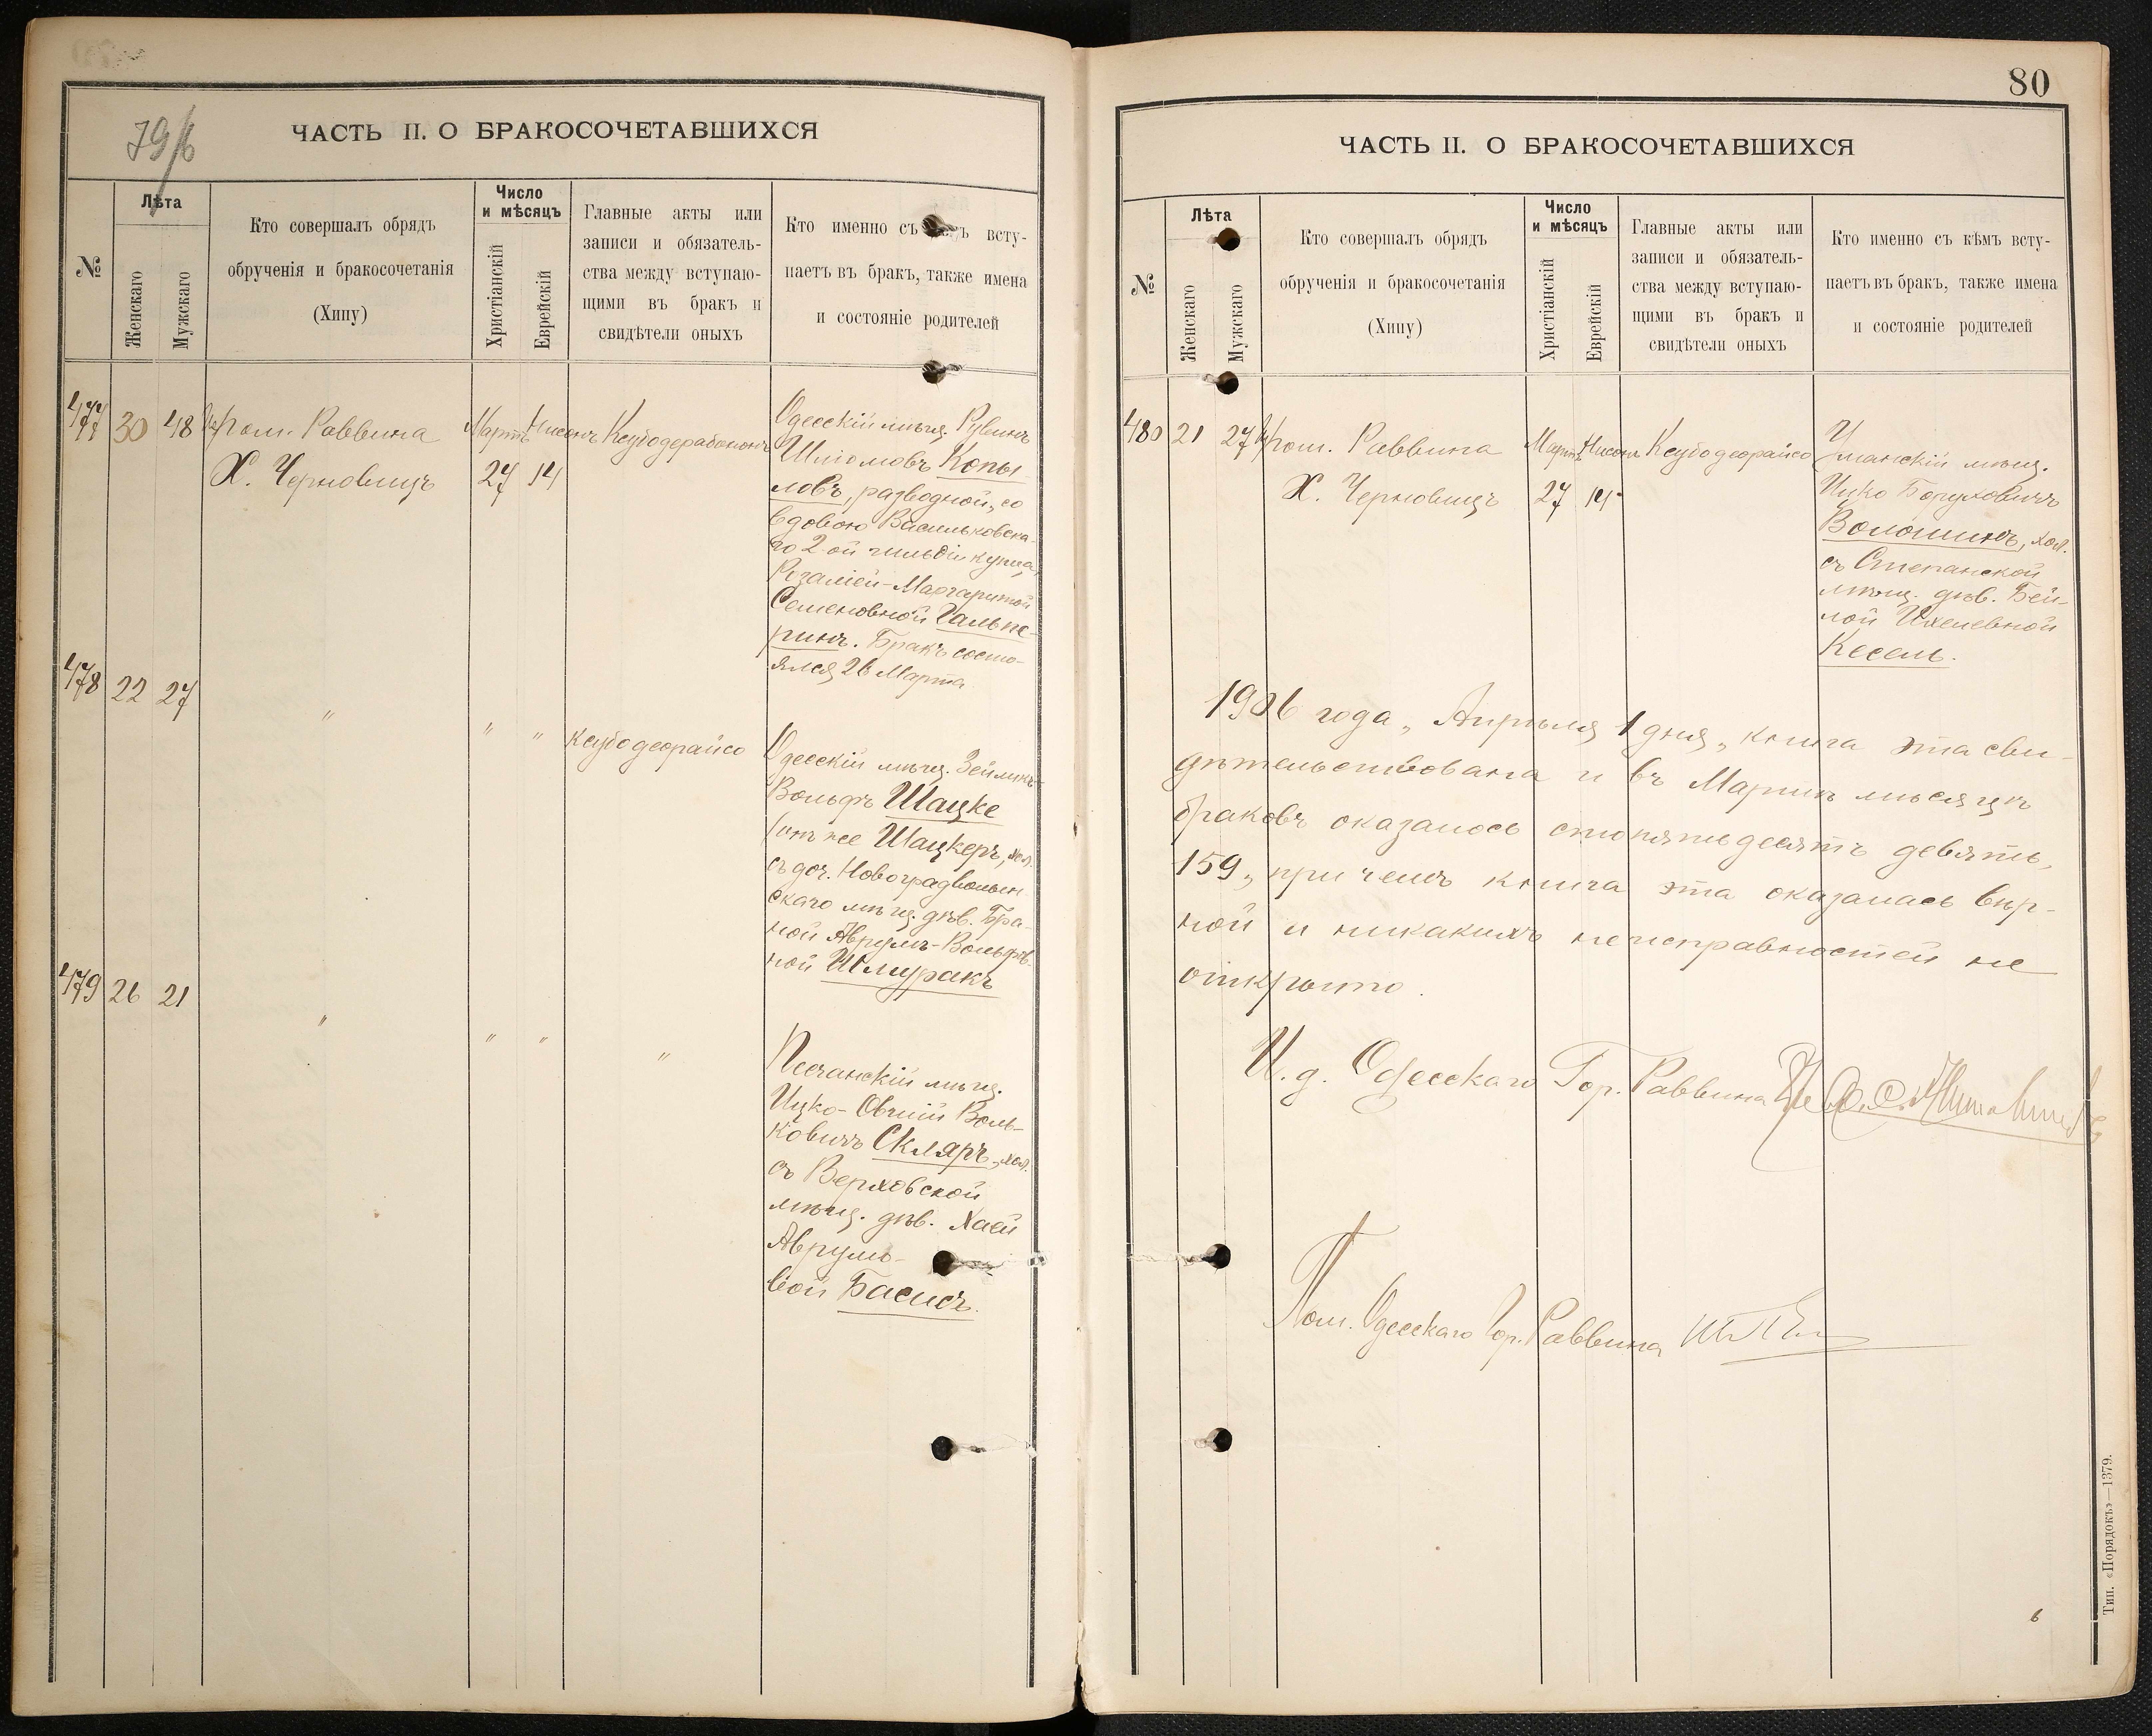 79/б
ЧАСТЬ II. О БРАКОСОЧЕТАВШИХСЯ
№
Лѣта
Женскаго
Мужскаго
Кто совершалъ обрядъ
обрученія и бракосочетанія
(Хипу)
Число
и мѣсяцъ
Христіанскій
Еврейскій
Главные акты или
записи и обязатель-
ства между вступаю-
щими въ бракъ и
свидѣтели оныхъ
Кто именно съ всту-
паетъ въ бракъ, также имена
и состояніе родителей
477 30 48 Пом. Раввина Мартъ Нисонъ Ксубодерабононъ
Х. Черновицъ 27 14
Одесскій мѣщ. Рувинъ
Шліомовъ Копы
ловъ, разводной, со
вдовою Васильковска-
го 2-ой гильдіи купца,
Розаліей-Маргаритой
Семеновной Гальпе-
ринъ. Бракъ состо-
ялся 26 Марта
478 22 27 " " " Ксубодеорайсо
Одесскій мѣщ. Зейликъ-
Вольфъ Шацке
(онъ же Шацкеръ, хол.
съ доч. Новоградволын
скаго мѣщ. дѣв. Бра-
ной Аврумъ-Вольфов-
ной Шмуракъ
479 26 21 " " " "
Песчанскій мѣщ.
Ицко-Овшій Воль-
ковичъ Скляръ, хол.
съ Верховской
мѣщ. дѣв. Хаей
Аврумо-
вой Басисъ.
80
ЧАСТЬ II. О БРАКОСОЧЕТАВШИХСЯ
№
Лѣта
Женскаго
Мужскаго
Кто совершалъ обрядъ
обрученія и бракосочетанія
(Хипу)
Число
и мѣсяцъ
Христіанскій
Еврейскій
Главные акты или
записи и обязатель-
ства между вступаю-
щими въ бракъ и
свидѣтели оныхъ
Кто именно съ кѣмъ всту-
паетъ въ бракъ, также имена
и состояніе родителей
480 21 27 Пом. Раввина Мартъ Нисонъ Ксубодеорайсо
Х. Черновицъ 27 14
Уманскій мѣщ.
Ицко Боруховичъ
Волошинъ, хол.
съ Степанской
мѣщ. дѣв. Бей-
лой Ихелевной
Кесель.
1906 года „ Апрѣля 1 дня „ книга эта сви-
дѣтельствована и въ Мартѣ мѣсяцѣ
браковъ оказалось сто пятьдесятъ девять,
159„ при чемъ книга эта оказалась вѣр-
ной и никакихъ неисправностей не
открыто.
И. д. Одесскаго Гор. Раввина
Пом. Одесскаго Гор. Раввина
Тип. «Порядокъ»—1379.
6